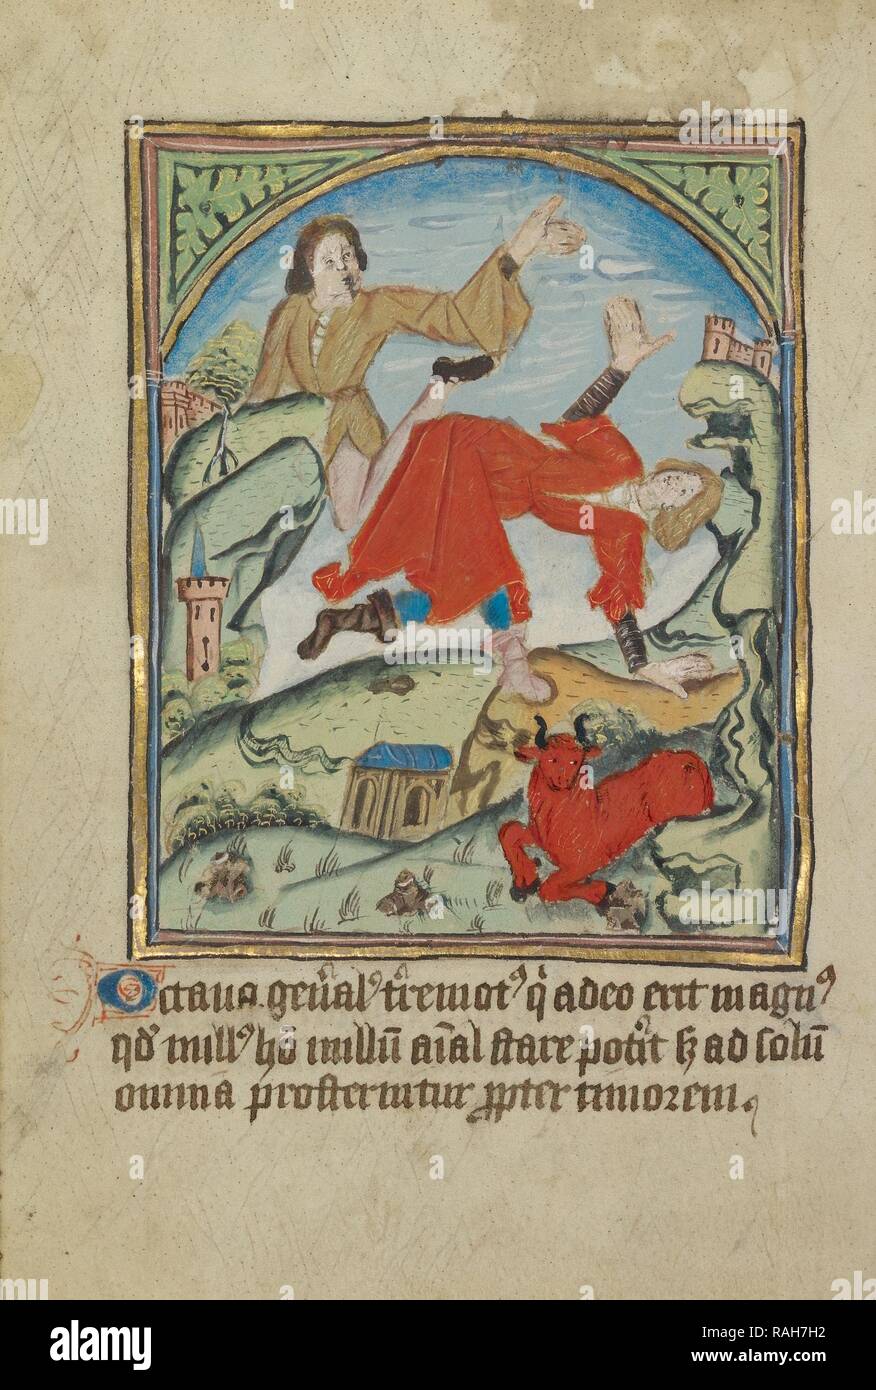 Octaua. gen̄al᷒ t̄remot᷒ q̇ adeo erit magn᷒
qd̛ mill᷒ hō nullū aīal stare poṫit sꝫ ad solū
omnia prosternutur ꝓpter timorem.
alamy
Image ID: RAH7H2
www.alamy.com